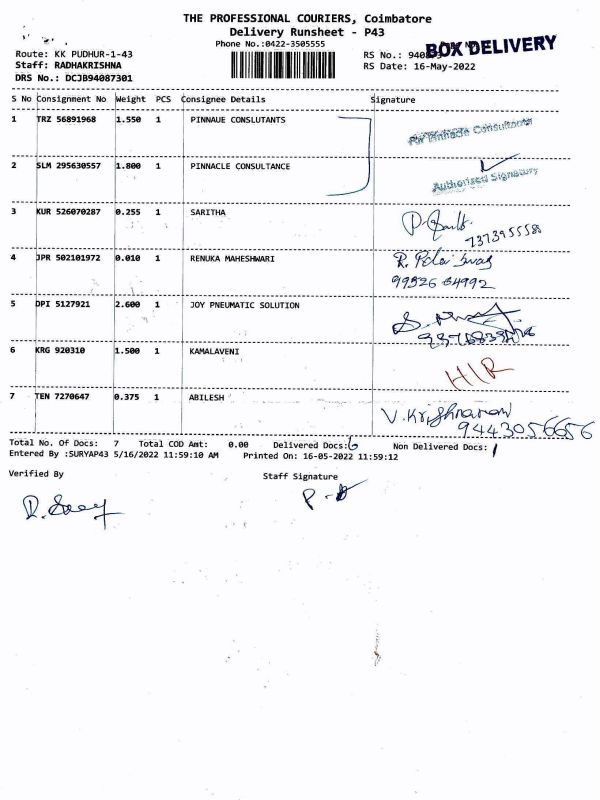 THE PROFESSIONAL COURIERS, Coimbatore
Delivery Runsheet - P43
Phone No.:0422-3505555
BOX DELIVERY
Route: KK PUDHUR-1-43
RS No.:
Staff: RADHAKRISHNA
RS Date: 16-May-2022
DRS No.: DCJB94087301
S No Consignment No Weight PCS Consignee Details Signature
1 TRZ 56891968 1.550 1 PINNAUE CONSLUTANTS
For Pinnacle Consultants
2 SLM 295630557 1.800 1 PINNACLE CONSULTANCE
Authorised Signatory
3 KUR 526070287 0.255 1 SARITHA
4 JPR 502101972 0.010 1 RENUKA MAHESHWARI
99526 64992
5 DPI 5127921 2.600 1 JOY PNEUMATIC SOLUTION
6 KRG 920310 1.500 1 KAMALAVENI
H/R
7 TEN 7270647 0.375 1 ABILESH
V.Krishnanan
9443056656
Total No. Of Docs: 7 Total COD Amt: 0.00 Delivered Docs: 6 Non Delivered Docs: 1
Entered By :SURYAP43 5/16/2022 11:59:10 AM Printed On: 16-05-2022 11:59:12
Verified By Staff Signature